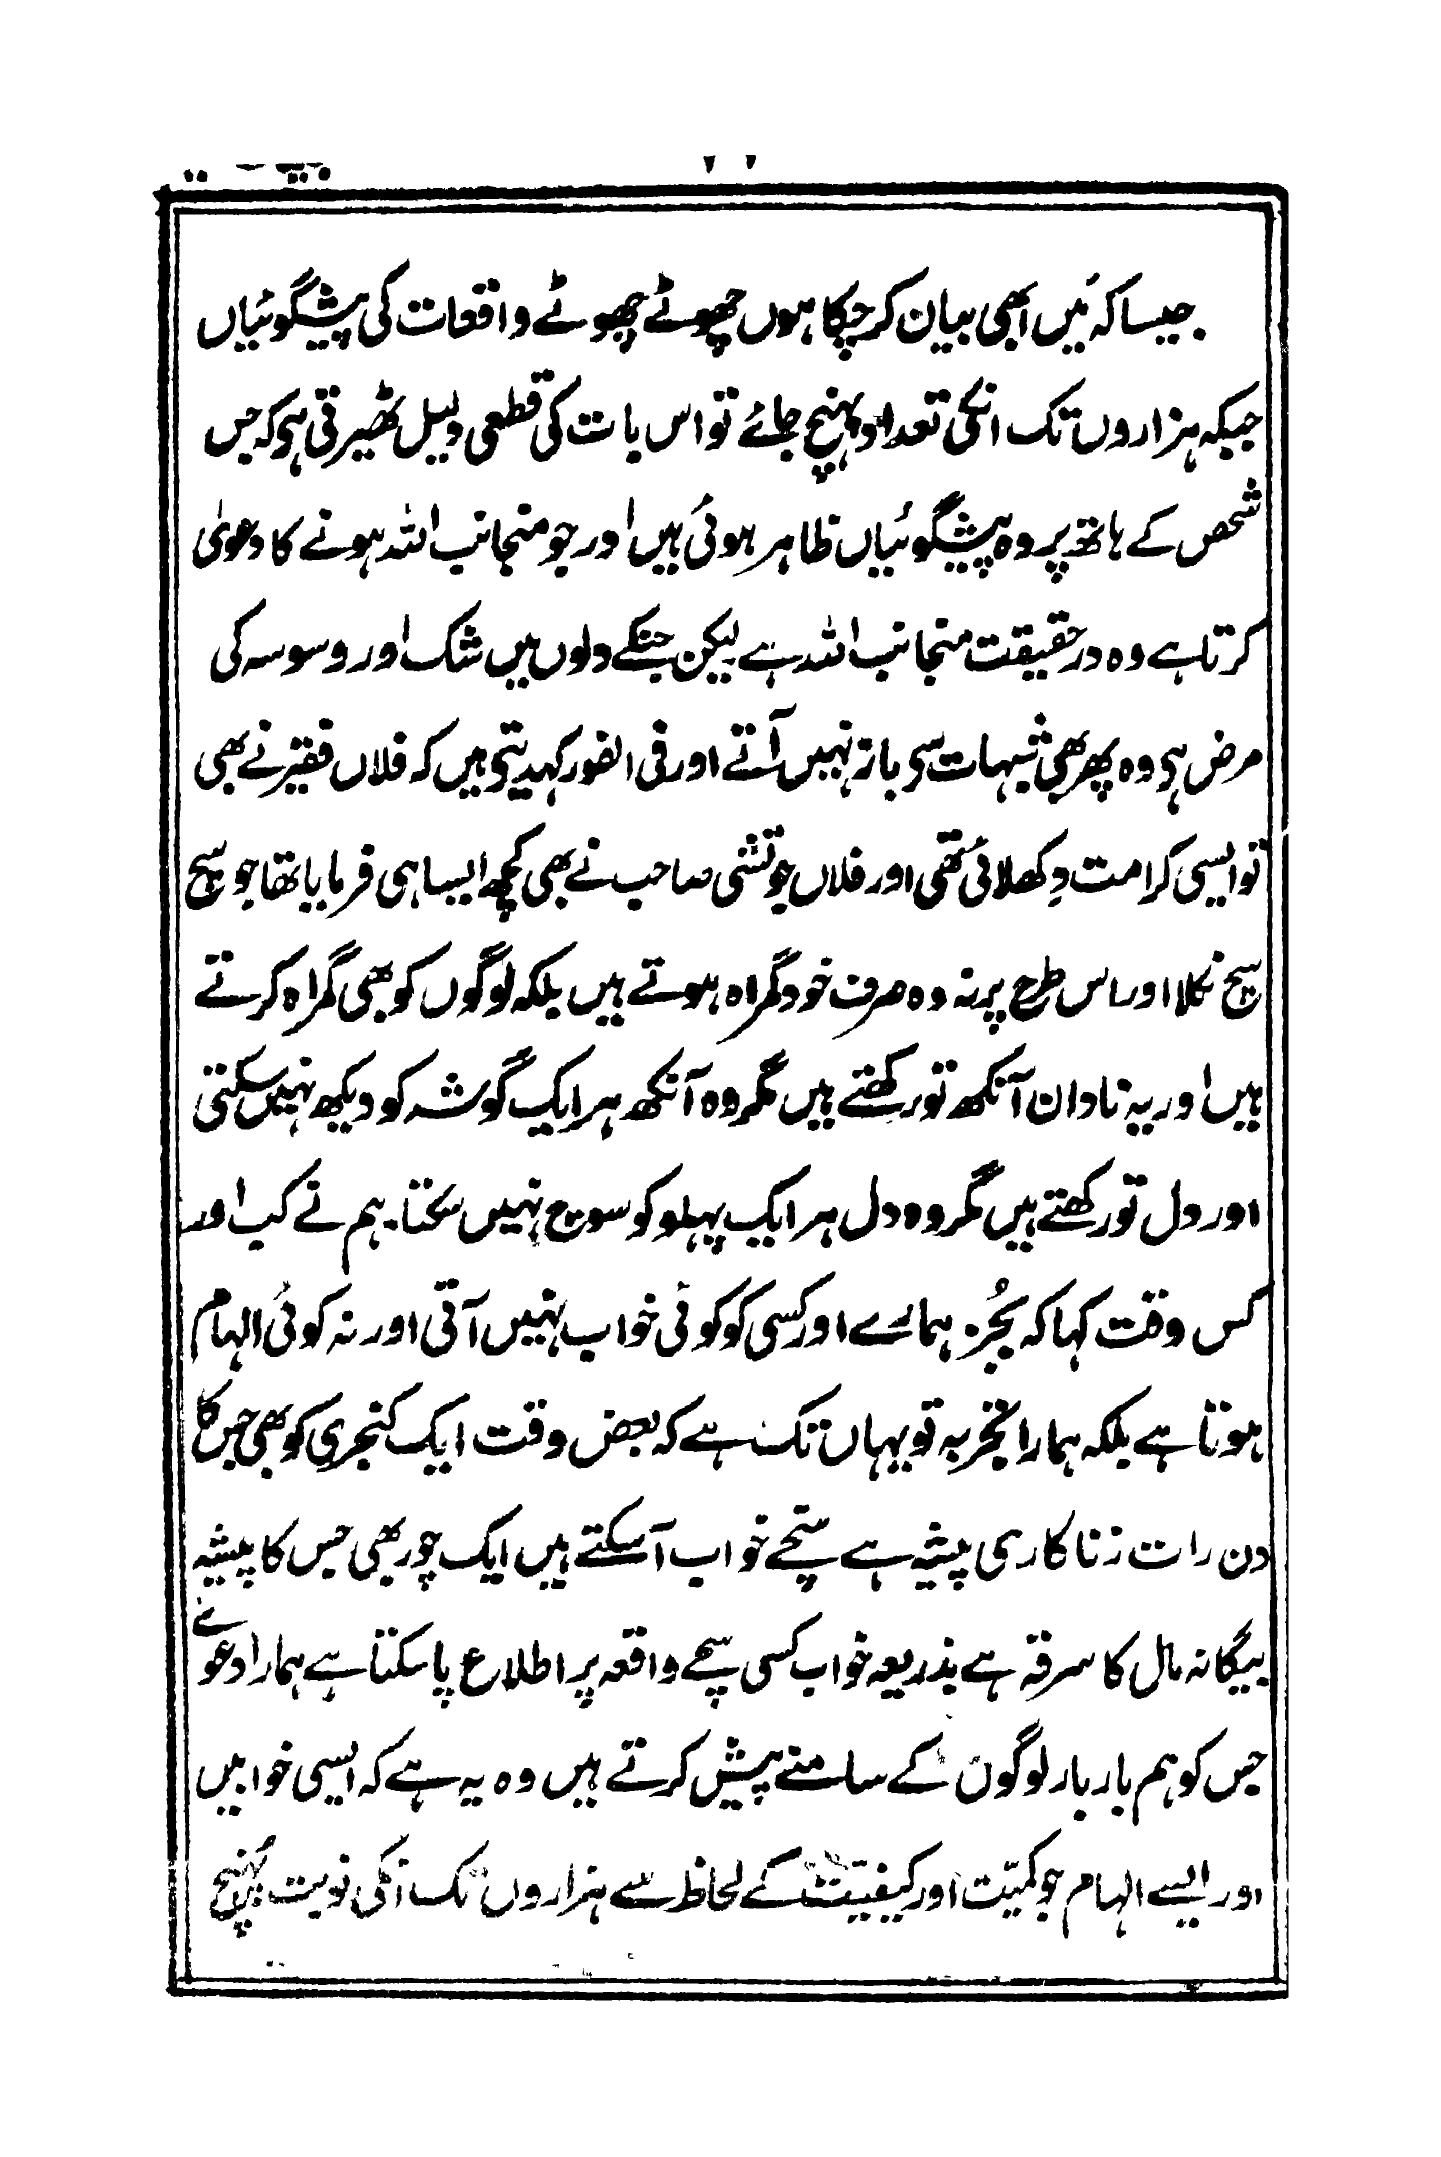 جیسا کہ مَیں ابھی بیان کر چکا ہوں چھوٹے چھوٹے واقعات کی پیشگوئیاں
جبکہ ہزاروں تک انکی تعداد پہنچ جائے تو اس بات کی قطعی دلیل ٹھیرتی ہی کہ جس
شخص کے ہاتھ پر وہ پیشگوئیاں ظاہر ہوئی ہیں اور جو منجانب اللہ ہونے کا دعویٰ
کرتا ہے وہ درحقیقت منجانب اللہ ہے لیکن جنکے دلوں میں شک اور وسوسہ کی
مرض ہی وہ پھر بھی شبہات سی باز نہیں آتے اور فی الفور کہدیتی ہیں کہ فلاں فقیر نے بھی
تو ایسی کرامت دِکھلائی تھی اور فلاں جوتشی صاحب نے بھی کچھ ایسا ہی فرمایا تھا جو سچ
سچ نکلا اور اس طرح پر نہ وہ صرف خود گمراہ ہوتے ہیں بلکہ لوگوں کو بھی گمراہ کرتے
ہیں اور یہ نادان آنکھ تو رکھتے ہیں مگر وہ آنکھ ہر ایک گوشہ کو دیکھ نہیں سکتی
اور دل تو رکھتے ہیں مگر وہ دل ہر ایک پہلو کو سوچ نہیں سکتا۔ ہم نے کب اور
کس وقت کہا کہ بجُز ہمارے اور کسی کو کوئی خواب نہیں آتی اور نہ کوئی الہام
ہوتا ہے بلکہ ہمارا تجربہ تو یہاں تک ہے کہ بعض وقت ایک کنجری کو بھی جس کا
دن رات زناکاری پیشہ ہے سچّے خواب آسکتے ہیں ایک چور بھی جس کا پیشہ
بیگانہ مال کا سرقہ ہے بذریعہ خواب کسی سچے واقعہ پر اطلاع پا سکتا ہے ہمارا دعوے
جس کو ہم بار بار لوگوں کے سامنے پیش کرتے ہیں وہ یہ ہے کہ ایسی خوابیں
اور ایسے الہام جو کمیّت اور کیفیّت کے لحاظ سے ہزاروں تک اُنکی نوبت پہنچ